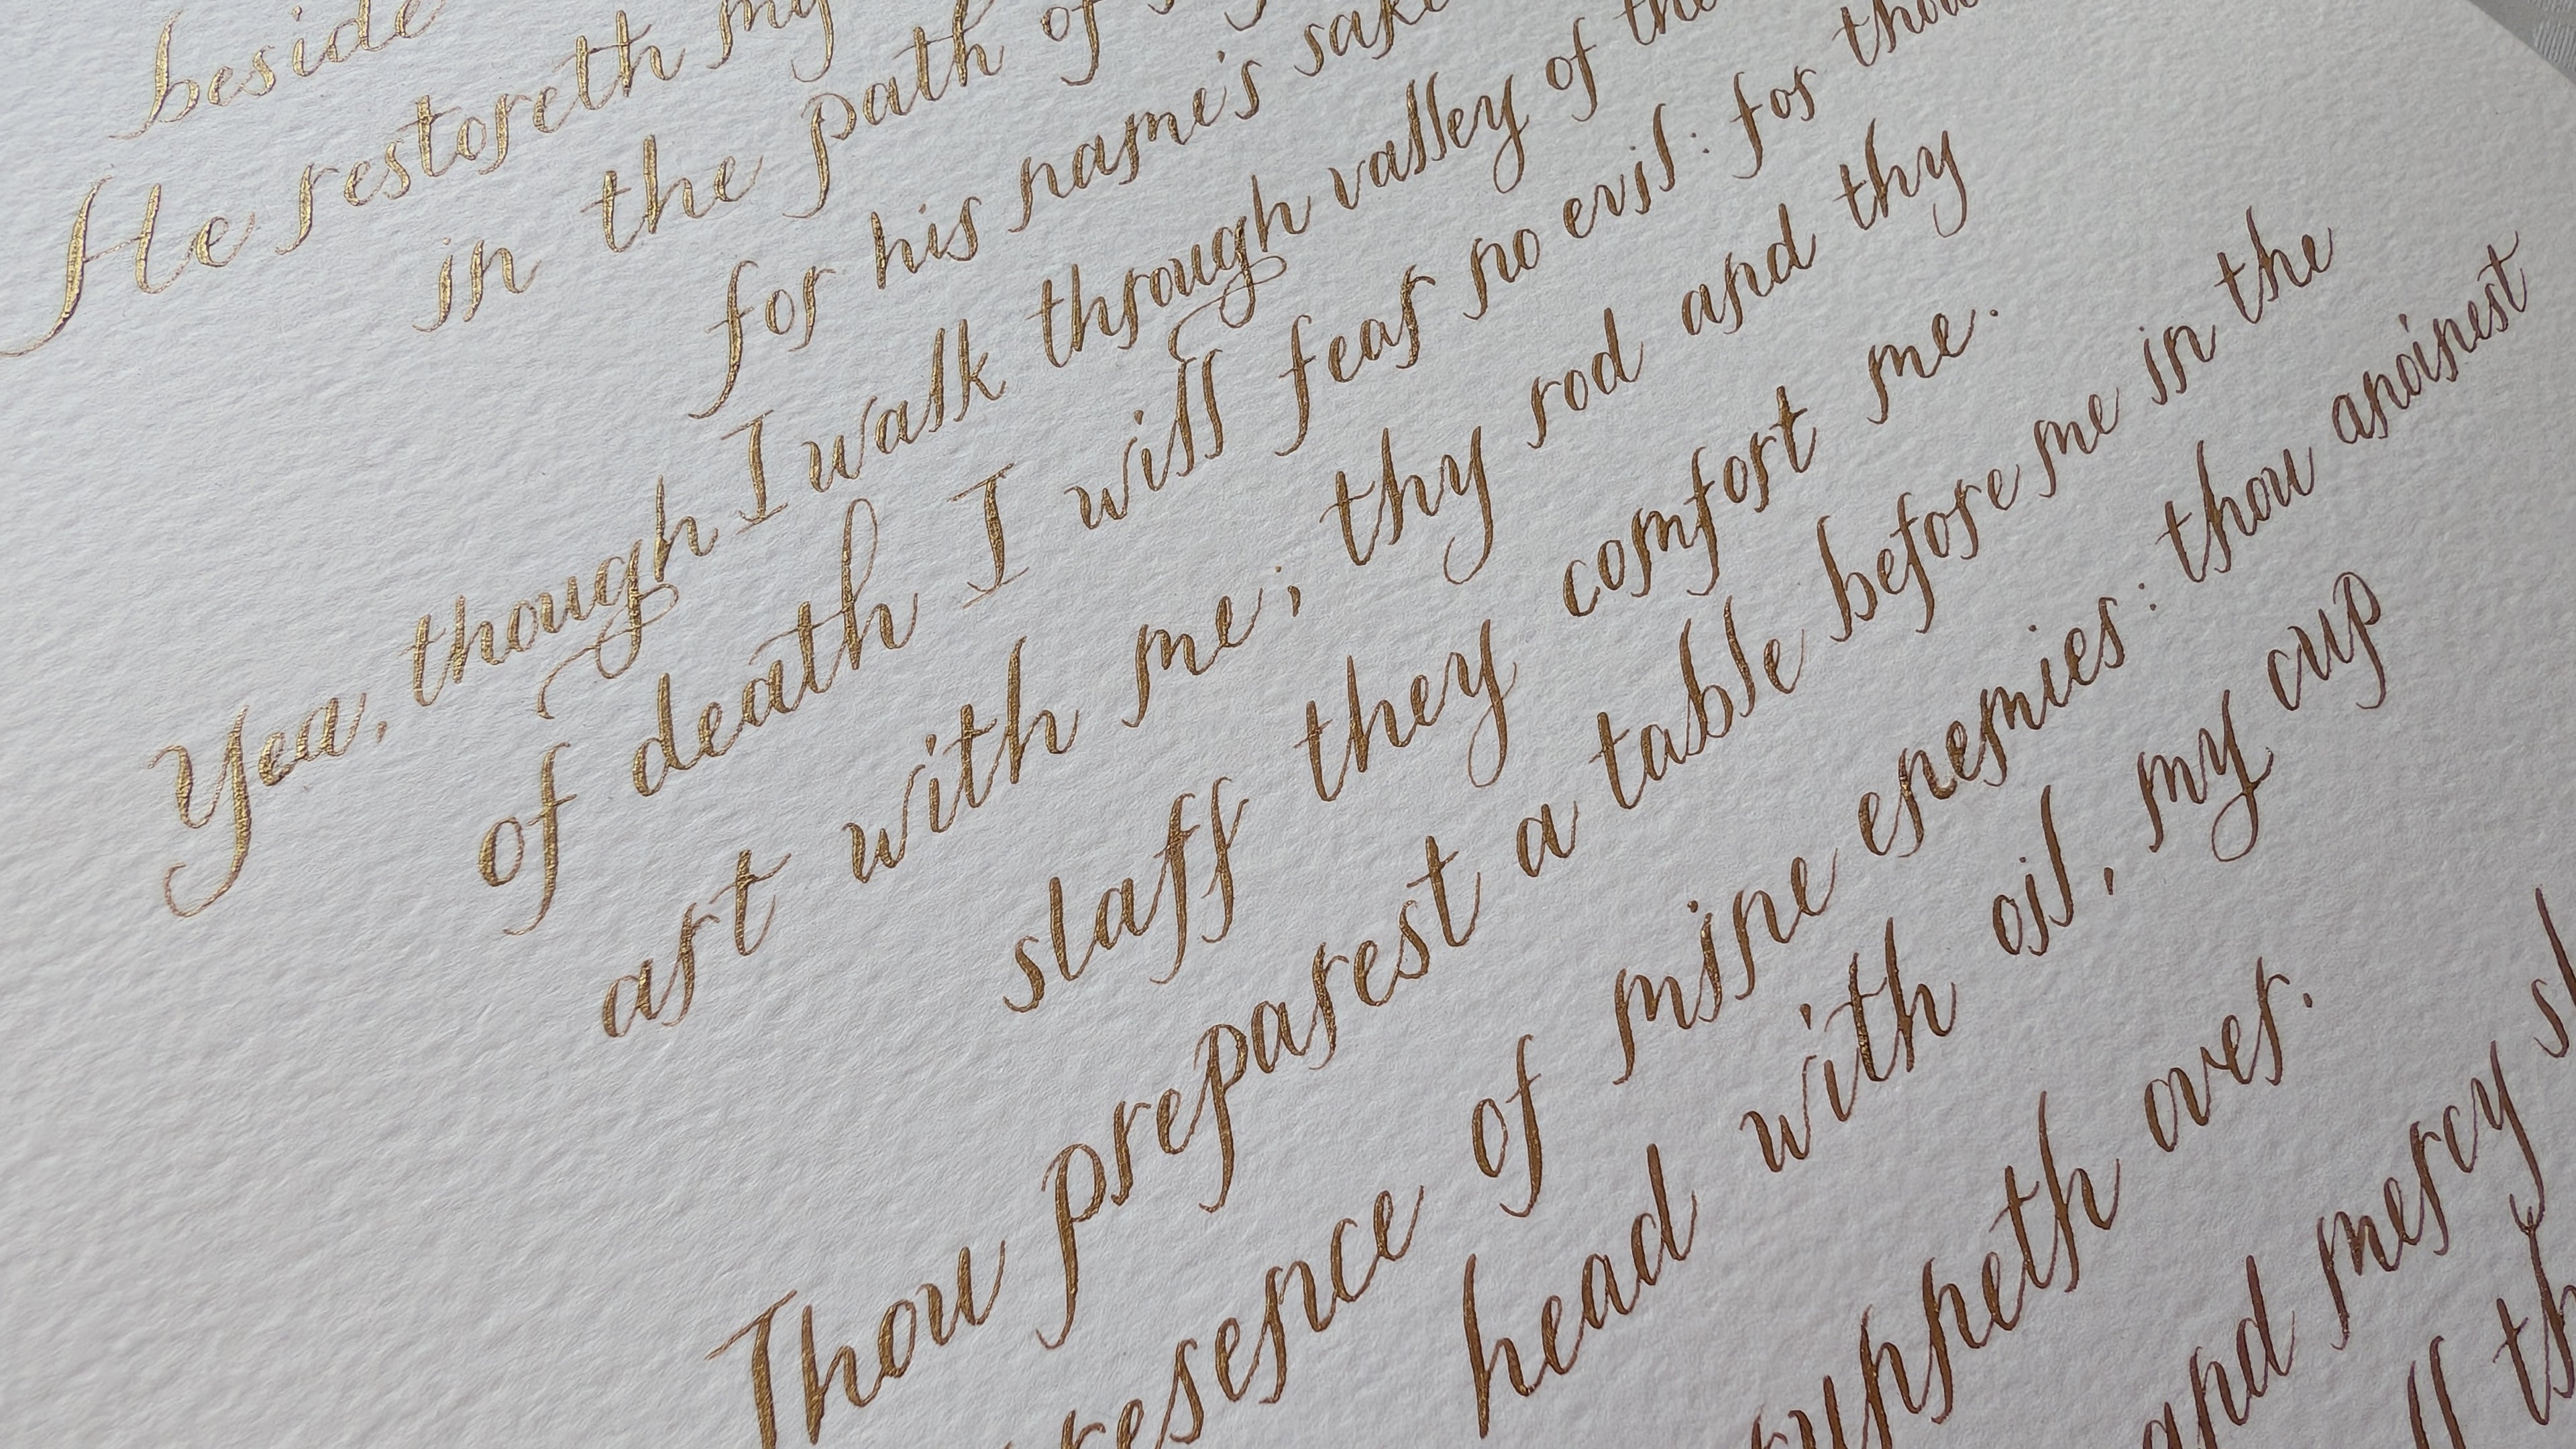 beside
He restoreth my
in the path of
for his name's sake
Yea, though I walk through valley of the
of death I will fear no evil: for thou
art with me; thy rod and thy
staff they comfort me.
Thou preparest a table before me in the
presence of mine enemies: thou anoinest
head with oil, my cup
runneth over.
and mercy